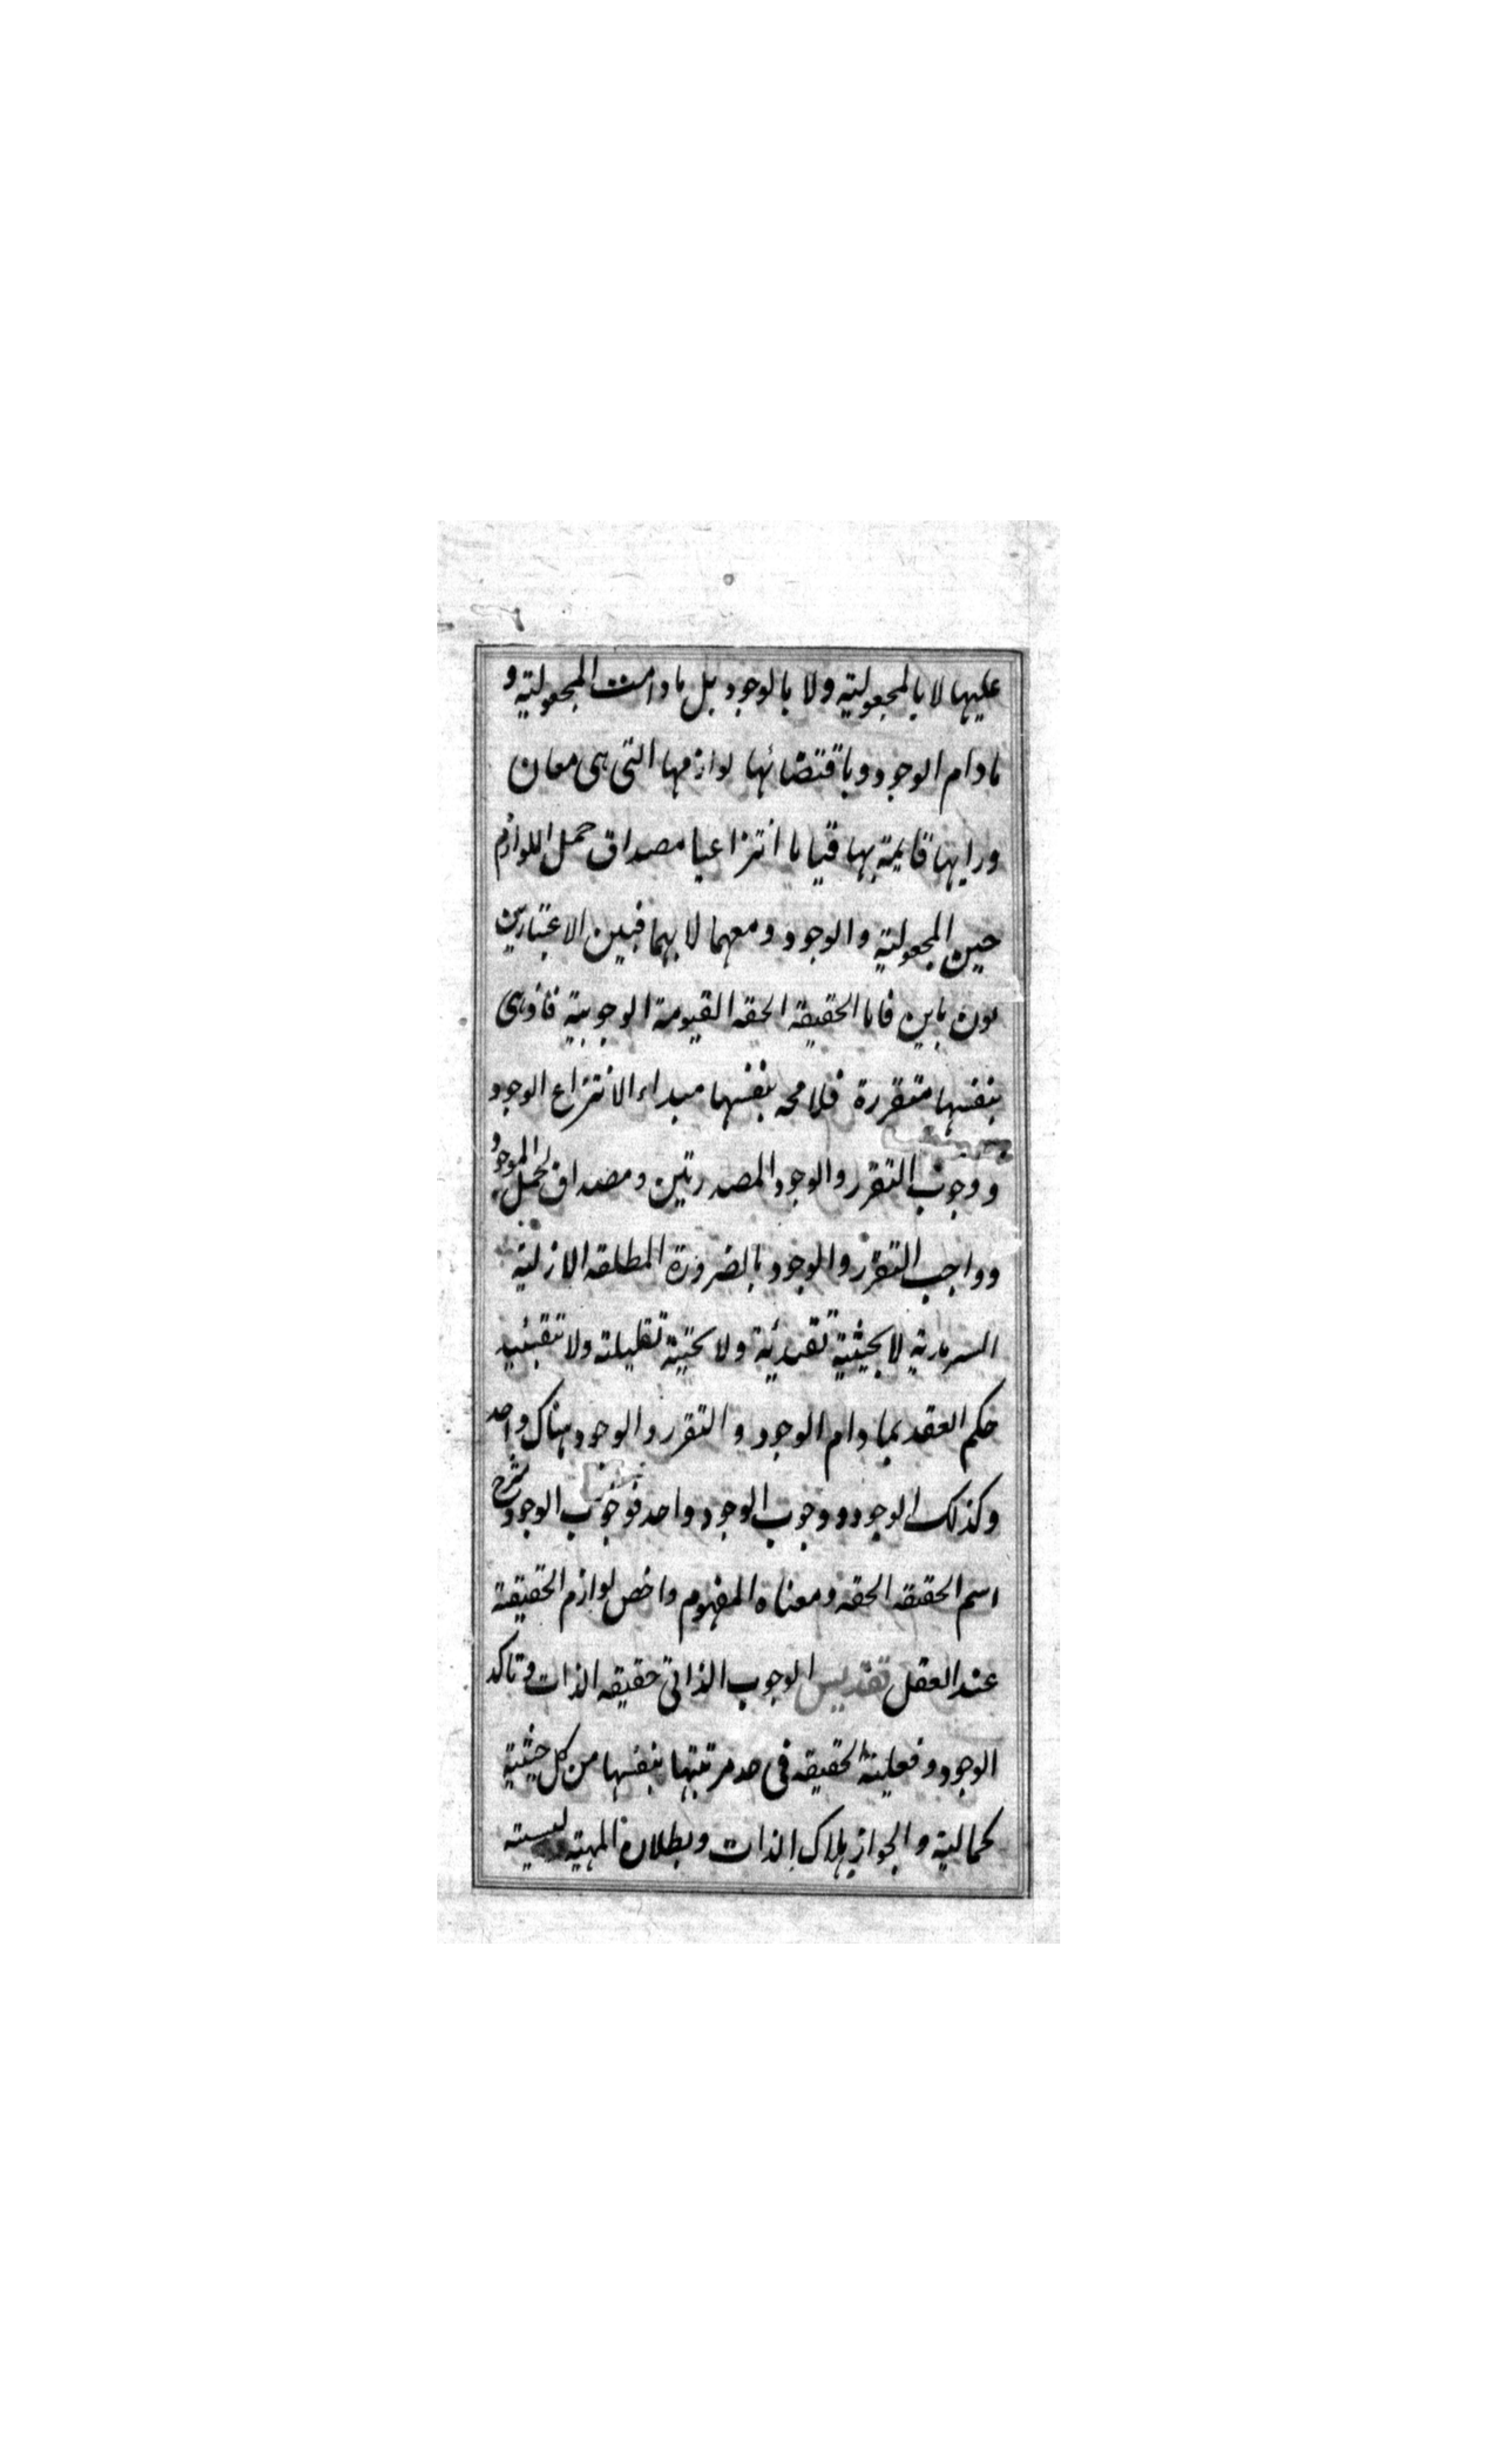 عليها لا بالمجعولية ولا بالوجود بل ما دامت المجعولية و
ما دام الوجود وباقتضائها لوازمها التى هى معان
ورايها قايمة بها قياما انتزاعيا مصداق حمل اللوازم
حين المجعولية والوجود ومعهما لا بهما فبين الاعتبارين
بون باين فاما الحقيقه الحقه القيومة الوجوبية فاذ هى
بنفسها متقررة فلا محه بنفسها مبداء الانتزاع الوجود
ووجوب التقرر والوجود المصدرتين ومصداق لحمل الموجود
وواجب التقرر والوجود بالضرورة المطلقه الازلية
السرمدية لا بحيثية تقيدية ولا بحيثية تعليلته ولا تقييد
حكم العقد بما دام الوجود والتقرر والوجود هناك واحد
وكذلك الوجود ووجوب الوجود واحد فوجوب الوجود شرح
اسم الحقيقه الحقه ومعناه المفهوم واخص لوازم الحقيقة
عند العقل تقديس الوجوب الذاتى حقيقه الذات وتاكد
الوجود وفعلية الحقيقه فى حد مرتبتها بنفسها من كل حيثية
كمالية والجواز هلاك الذات وبطلان المهية ليسيته